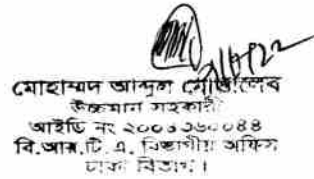 মোহাম্মদ আব্দুল মোত্তালেব
উচ্চমান সহকারী
আইডি নং ২০০৩১৬০০৪৪
বি.আর.টি.এ. বিভাগীয় অফিস
ঢাকা বিভাগ।